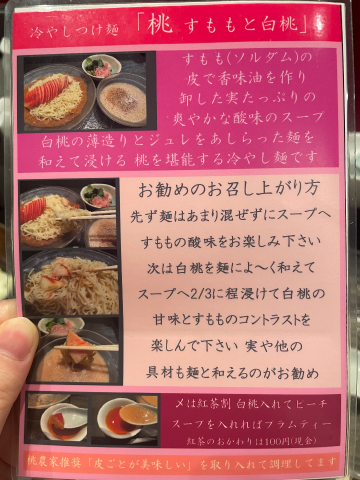 冷やしつけ麺 「桃 すももと白桃」
すもも(ソルダム)の
皮で香味油を作り
卸した実たっぷりの
爽やかな酸味のスープ
白桃の薄造りとジュレをあしらった麺を
和えて浸ける 桃を堪能する冷やし麺です
お勧めのお召し上がり方
先ず麺はあまり混ぜずにスープへ
すももの酸味をお楽しみ下さい
次は白桃を麺によ〜く和えて
スープへ2/3に程浸けて白桃の
甘味とすもものコントラストを
楽しんで下さい 実や他の
具材も麺と和えるのがお勧め
〆は紅茶割 白桃入れてピーチ
スープを入れればプラムティー
紅茶のおかわりは100円(現金)
桃農家推奨「皮ごとが美味しい」を取り入れて調理してます